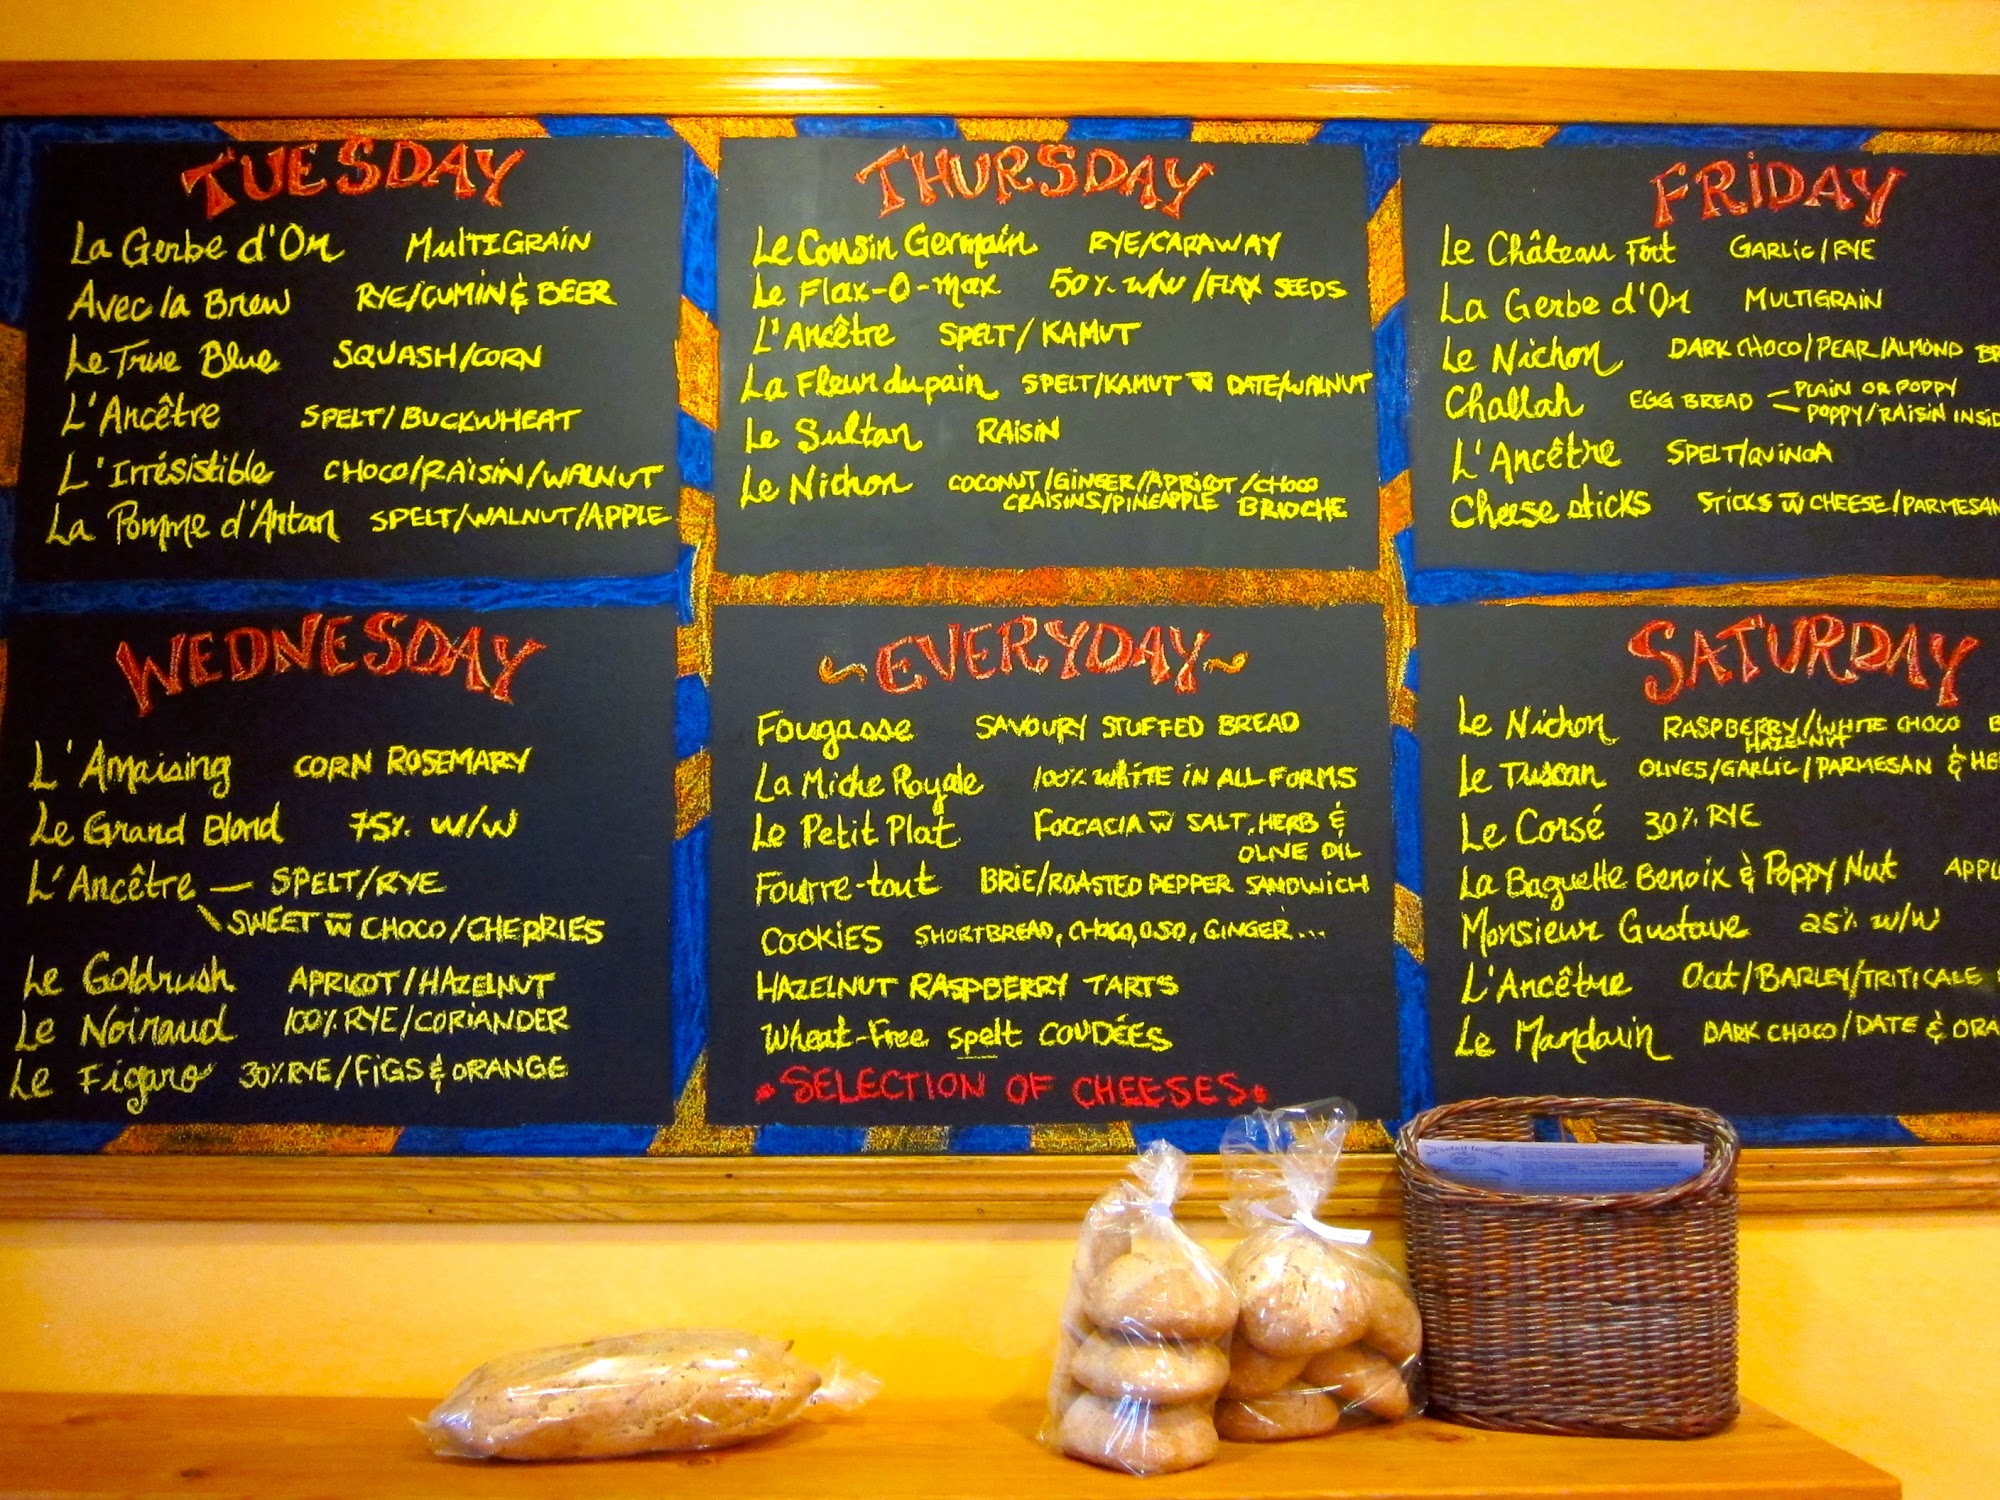 TUESDAY
La Gerbe d'Or MULTIGRAIN
Avec la Brew RYE/CUMIN & BEER
Le True Blue SQUASH/CORN
L'Ancêtre SPELT/BUCKWHEAT
L'Irrésistible CHOCO/RAISIN/WALNUT
La Pomme d'Antan SPELT/WALNUT/APPLE
THURSDAY
Le Cousin Germain RYE/CARAWAY
Le Flax-O-max 50% w/w /FLAX SEEDS
L'Ancêtre SPELT/KAMUT
La Fleur du pain SPELT/KAMUT w DATE/WALNUT
Le Sultan RAISIN
Le Nichon COCONUT/GINGER/APRICOT/CHOCO
CRAISINS/PINEAPPLE BRIOCHE
FRIDAY
Le Château Fort GARLIC/RYE
La Gerbe d'Or MULTIGRAIN
Le Nichon DARK CHOCO/PEAR/ALMOND BR
Challah EGG BREAD — PLAIN OR POPPY
— POPPY/RAISIN INSID
L'Ancêtre SPELT/QUINOA
Cheese sticks STICKS w CHEESE/PARMESAN
WEDNESDAY
L'Amaising CORN ROSEMARY
Le Grand Blond 75% W/W
L'Ancêtre — SPELT/RYE
\ SWEET w CHOCO/CHERRIES
Le Goldrush APRICOT/HAZELNUT
Le Noiraud 100% RYE/CORIANDER
Le Figaro 30% RYE/FIGS & ORANGE
~EVERYDAY~
Fougasse SAVOURY STUFFED BREAD
La Miche Royale 100% WHITE IN ALL FORMS
Le Petit Plat FOCCACIA w SALT, HERB &
OLIVE OIL
Fourre-tout BRIE/ROASTED PEPPER SANDWICH
COOKIES SHORTBREAD, CHOCO, OSO, GINGER...
HAZELNUT RASPBERRY TARTS
Wheat-Free spelt COUDÉES
• SELECTION OF CHEESES •
SATURDAY
Le Nichon RASPBERRY/WHITE CHOCO B
HAZELNUT
Le Tuscan OLIVES/GARLIC/PARMESAN & HE
Le Corsé 30% RYE
La Baguette Benoix & Poppy Nut APPL
Monsieur Gustave 25% W/W
L'Ancêtre Oat/BARLEY/TRITICALE
Le Mandarin DARK CHOCO/DATE & ORA